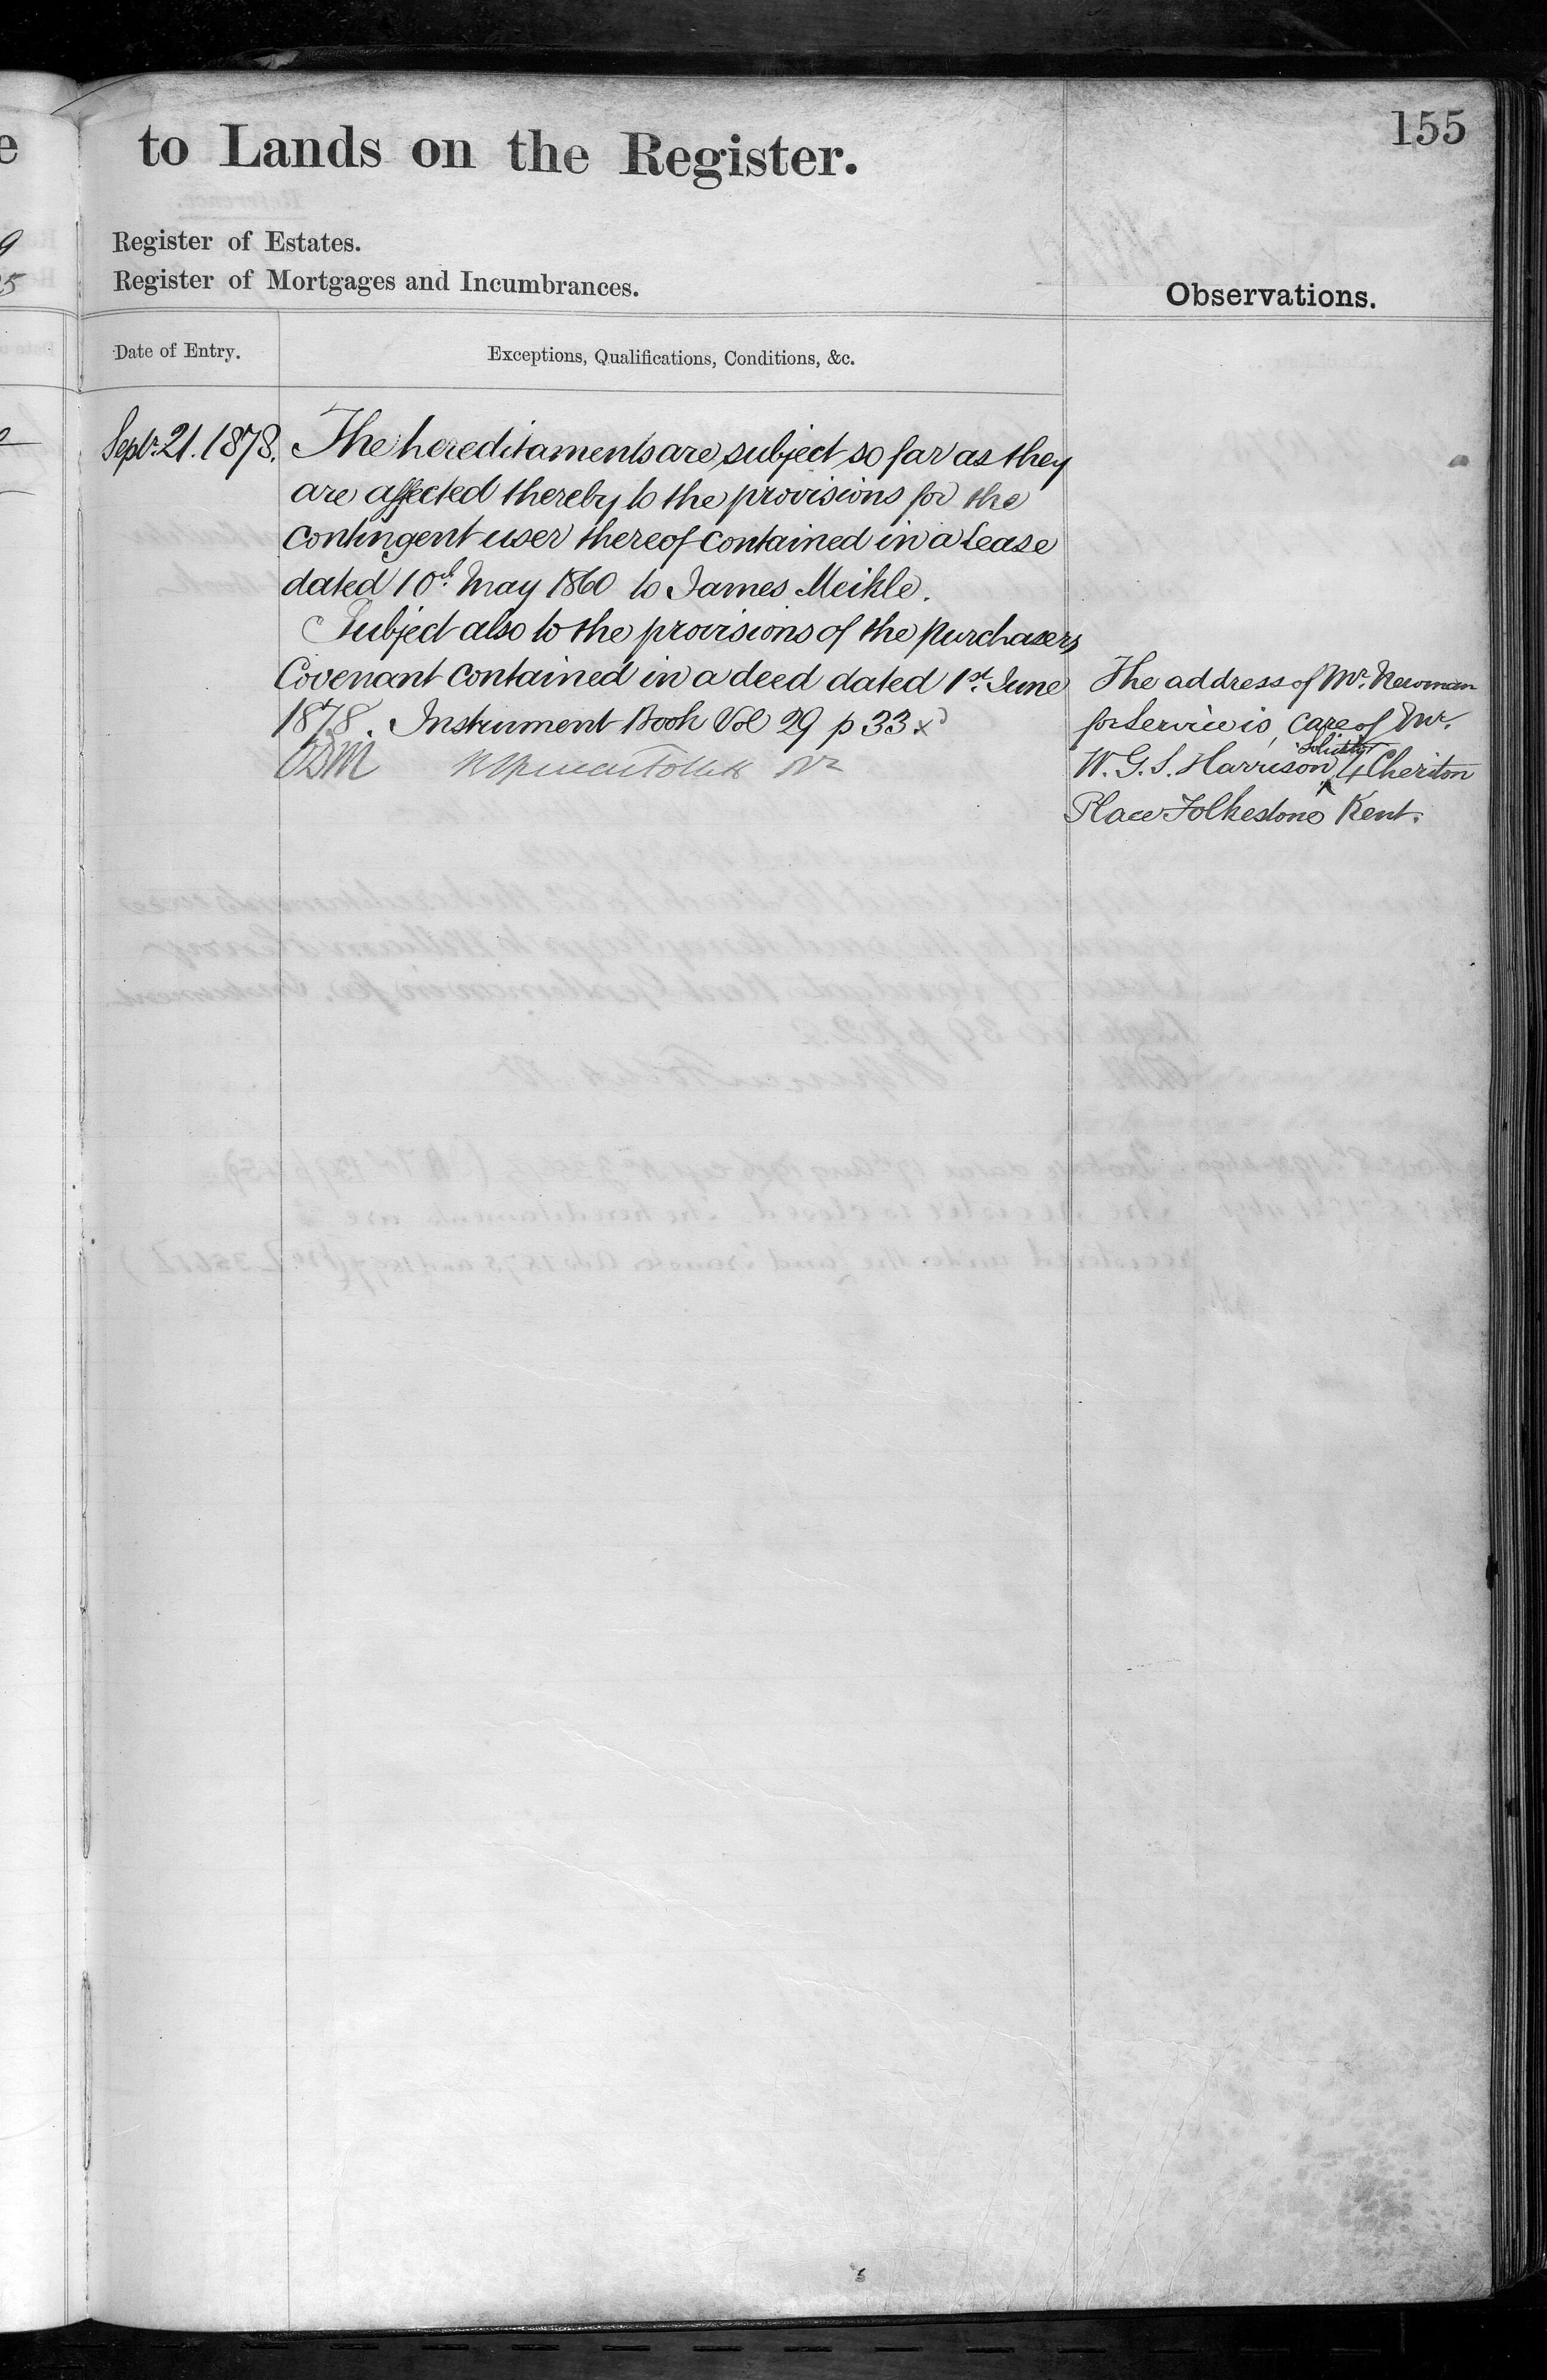 155
to Lands on the Register.
Register of Estates.
Register of Mortgages and Incumbrances.
Observations.
Date of Entry.
Exceptions, Qualifications, Conditions, &c.
Septr. 21. 1878.
The hereditaments are subject so far as they
are affected thereby to the provisions for the
contingent user thereof contained in a Lease
dated 10th May 1860 to James Meikle.
Subject also to the provisions of the purchasers
Covenant contained in a deed dated 1st June
1878. Instrument Book Vol 29 p 33
The address of Mr. Newman
for Service is, care of Mr.
Solicitor
W. G. S. Harrison 4 Cheriton
Place Folkestone Kent.